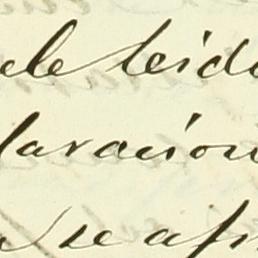 ele leido
laracion
se af